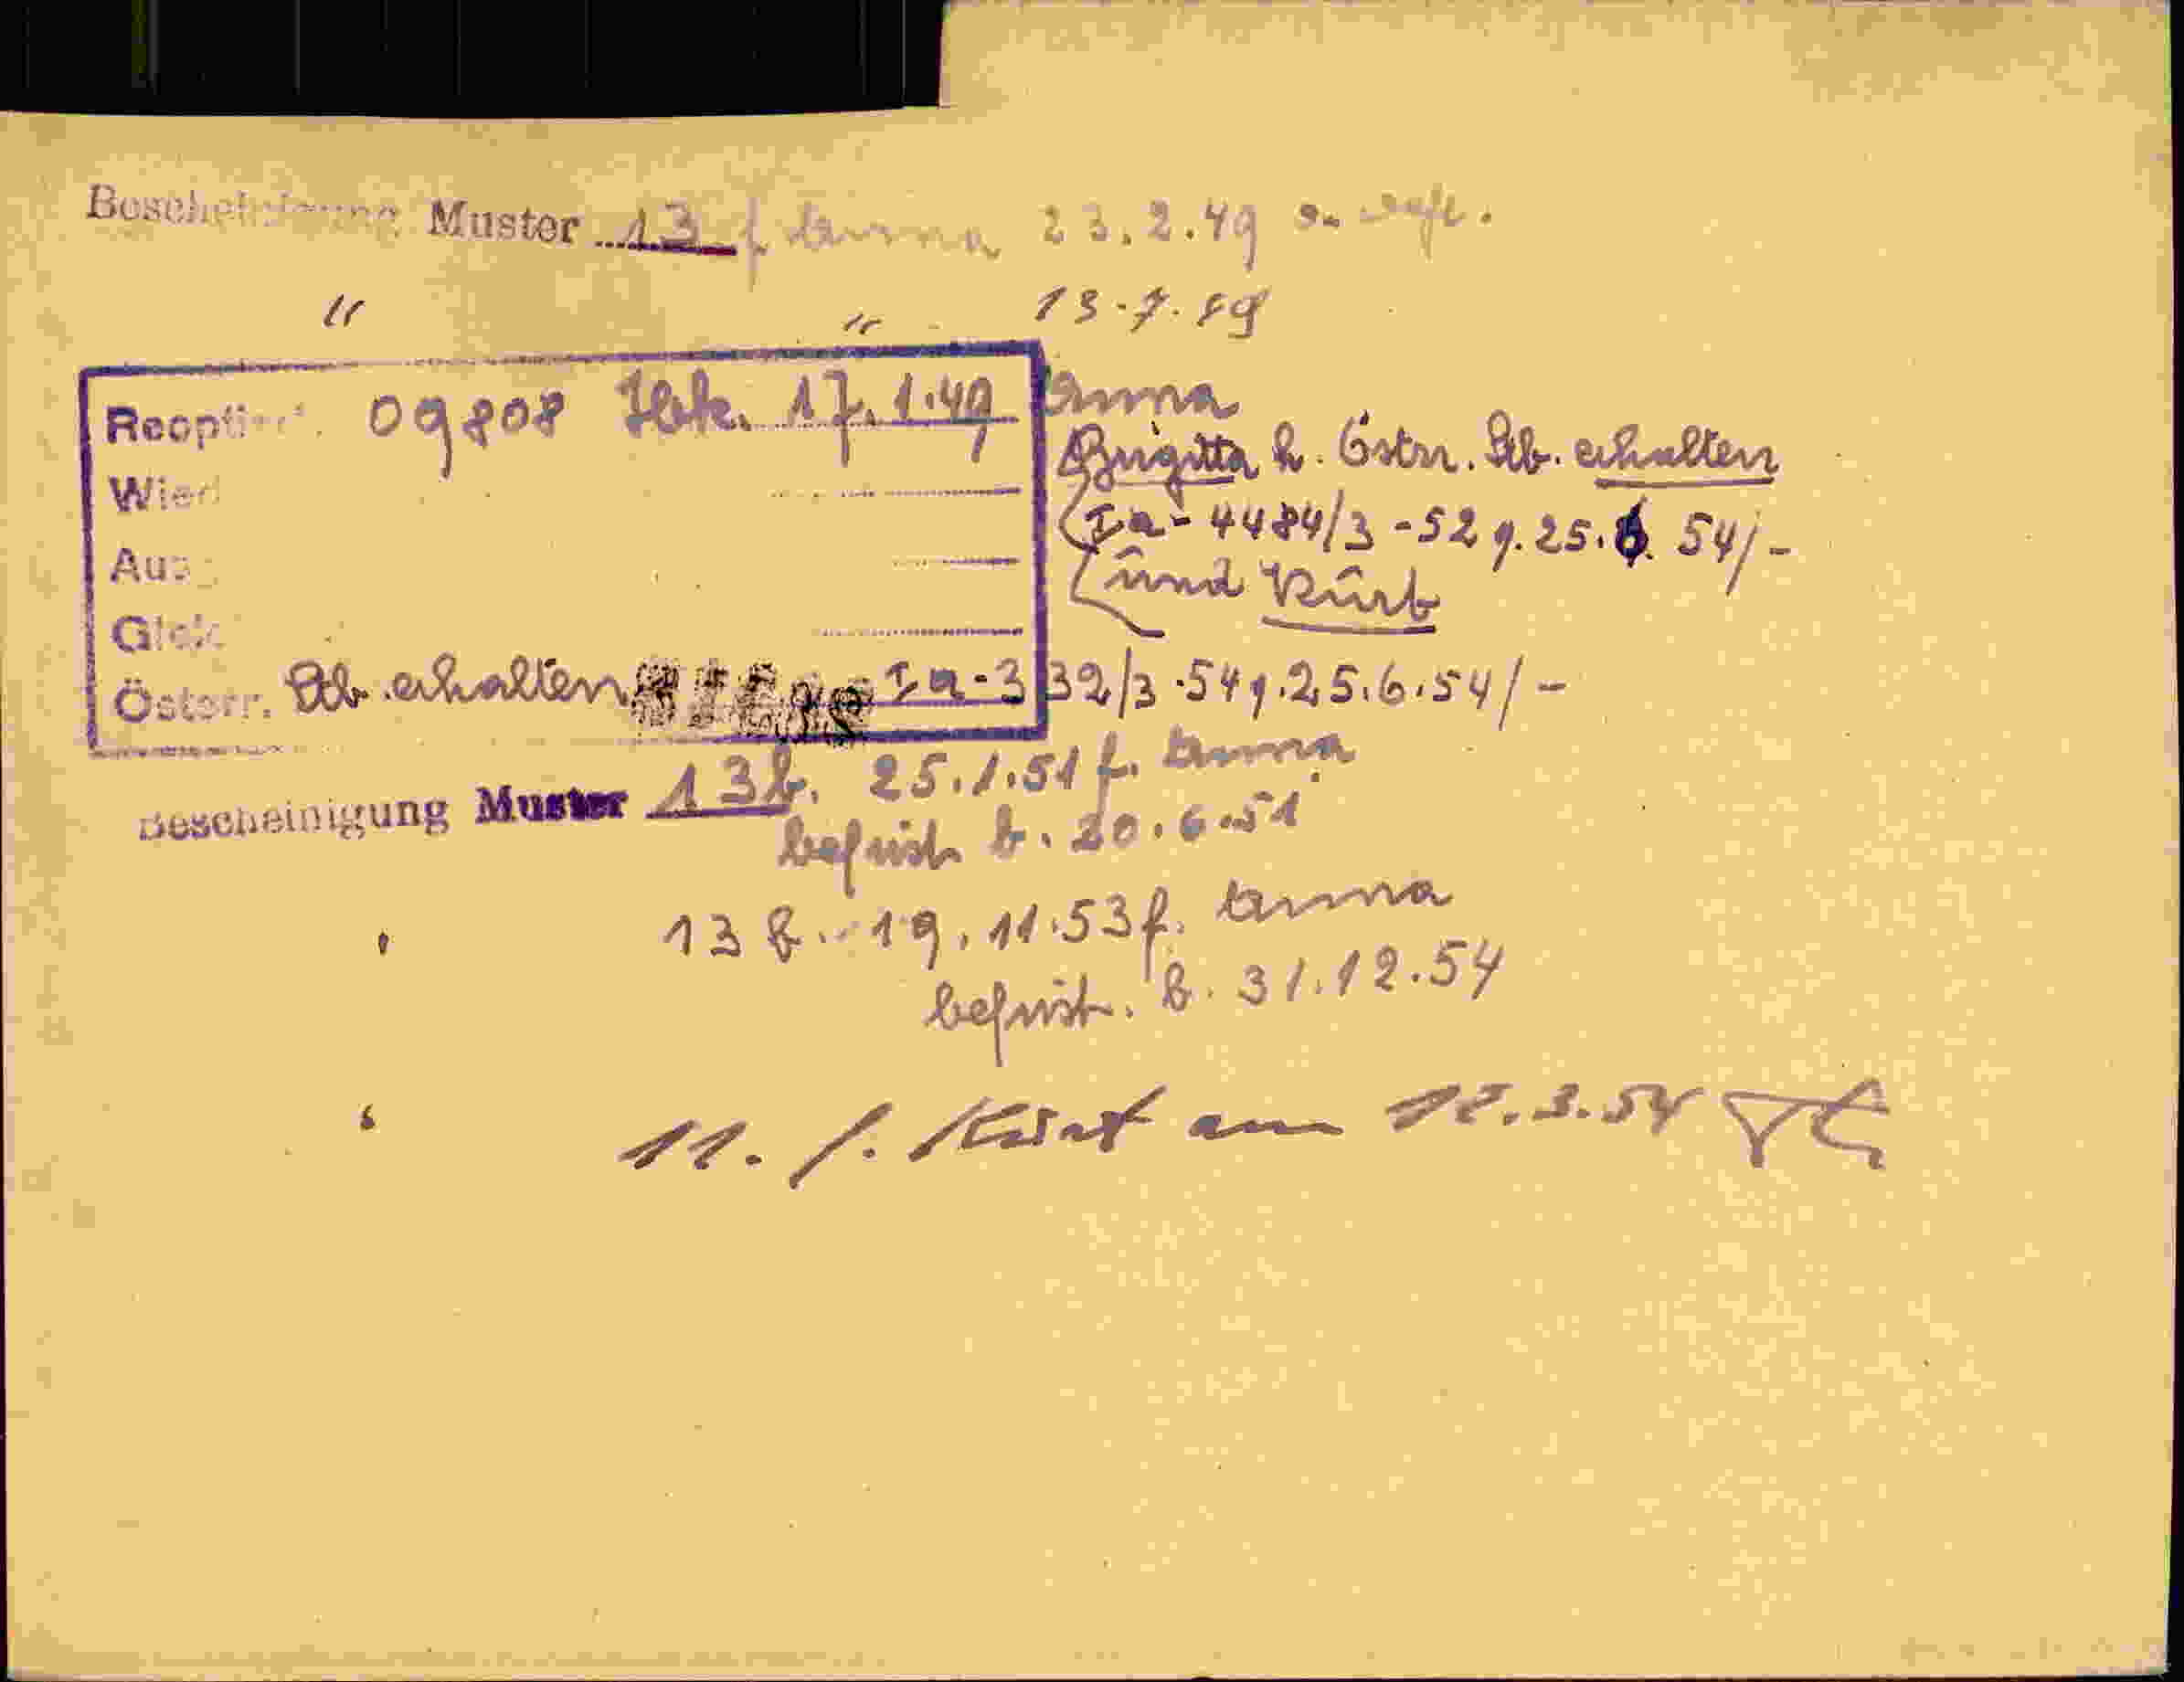 Bescheinigung Muster 13 f Anna 23.2.49
" " 13.7.49
Reoptiert 09808 Ibk. 17.1.49 Anna
Wied
Ausg
Gleic
Österr. Stb. erhalten Ia-332/3-54 g. 25.6.54/-
Brigitta h. Östrr. Stb. erhalten
(Ia-4484/3-52 g. 25.6.54/-
(und Kurt
Bescheinigung Muster 13b. 25.1.51 f. Anna
befrist. b. 20.6.51
" 13 b. - 19.11.53 f. Anna
befrist. b. 31.12.54
" 11. f. Kurt am 18.3.54